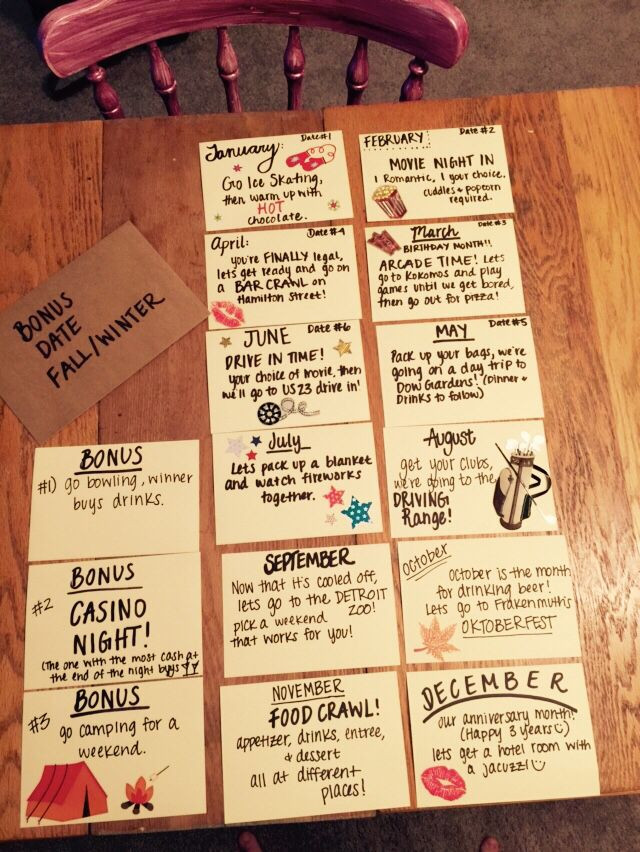 January: Date #1
Go Ice Skating,
then warm up with
HOT
chocolate.
FEBRUARY: Date #2
MOVIE NIGHT IN
1 Romantic, 1 your choice.
cuddles + popcorn
required.
April: Date #4
you're FINALLY legal,
lets get ready and go on
a BAR CRAWL on
Hamilton Street!
March Date #3
BIRTHDAY MONTH!!
ARCADE TIME! Lets
go to Kokomos and play
games until we get bored,
then go out for pizza!
BONUS
DATE
FALL/WINTER
JUNE Date #6
DRIVE IN TIME!
your choice of movie, then
we'll go to US 23 drive in!
MAY Date #5
Pack up your bags, we're
going on a day trip to
Dow Gardens! (Dinner +
Drinks to follow)
July
Lets pack up a blanket
and watch fireworks
together.
August
get your clubs,
we're going to the
DRIVING
Range!
BONUS
#1) go bowling, winner
buys drinks.
SEPTEMBER
Now that it's cooled off,
lets go to the DETROIT
ZOO!
pick a weekend
that works for you!
October
October is the month
for drinking beer!
Lets go to Frakenmuth's
OKTOBERFEST
BONUS
#2
CASINO
NIGHT!
(The one with the most cash at
the end of the night buys
BONUS
#3 go camping for a
weekend.
NOVEMBER
FOOD CRAWL!
appetizer, drinks, entree,
+ dessert
all at different
places!
DECEMBER
our anniversary month!
(Happy 3 years)
lets get a hotel room with
a jacuzzi